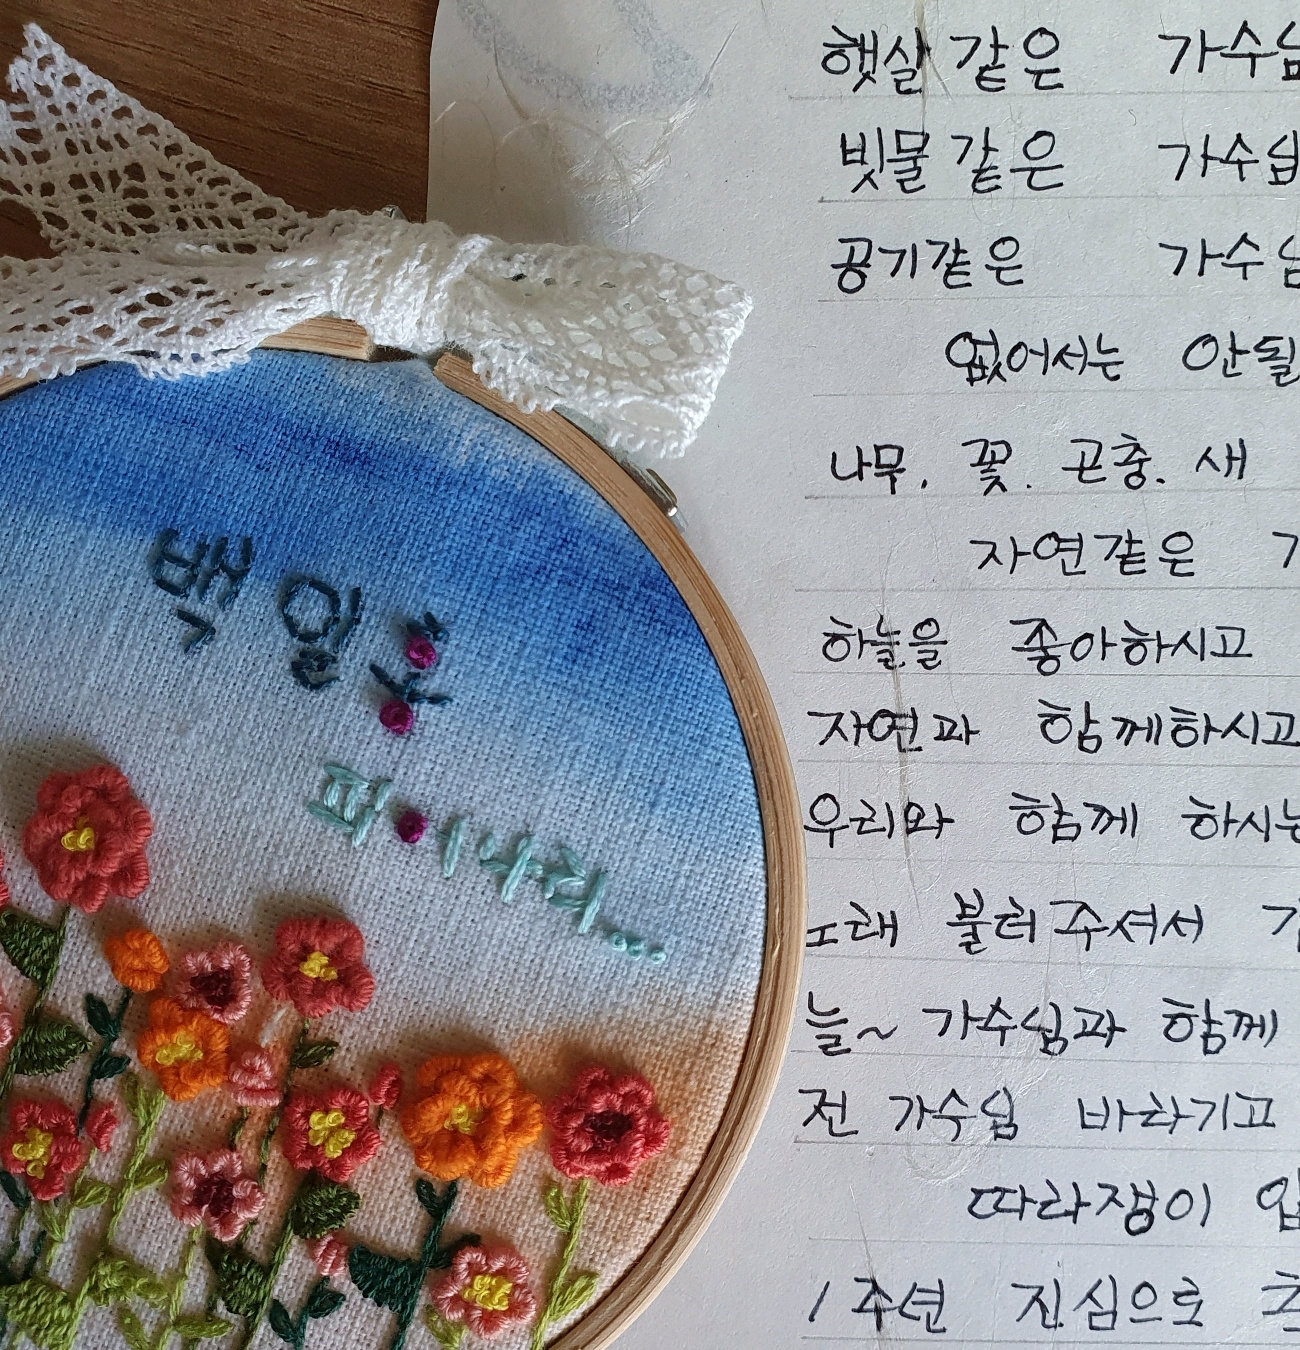 햇살 같은 가수님
빗물 같은 가수님
공기같은 가수님
없어서는 안될
나무. 꽃. 곤충. 새
자연같은
하늘을 좋아하시고
자연과 함께하시고
우리와 함께 하시는
노래 불러주셔서
늘~ 가수님과 함께
전 가수님 바라기고
따라쟁이
1주년 진심으로
백영